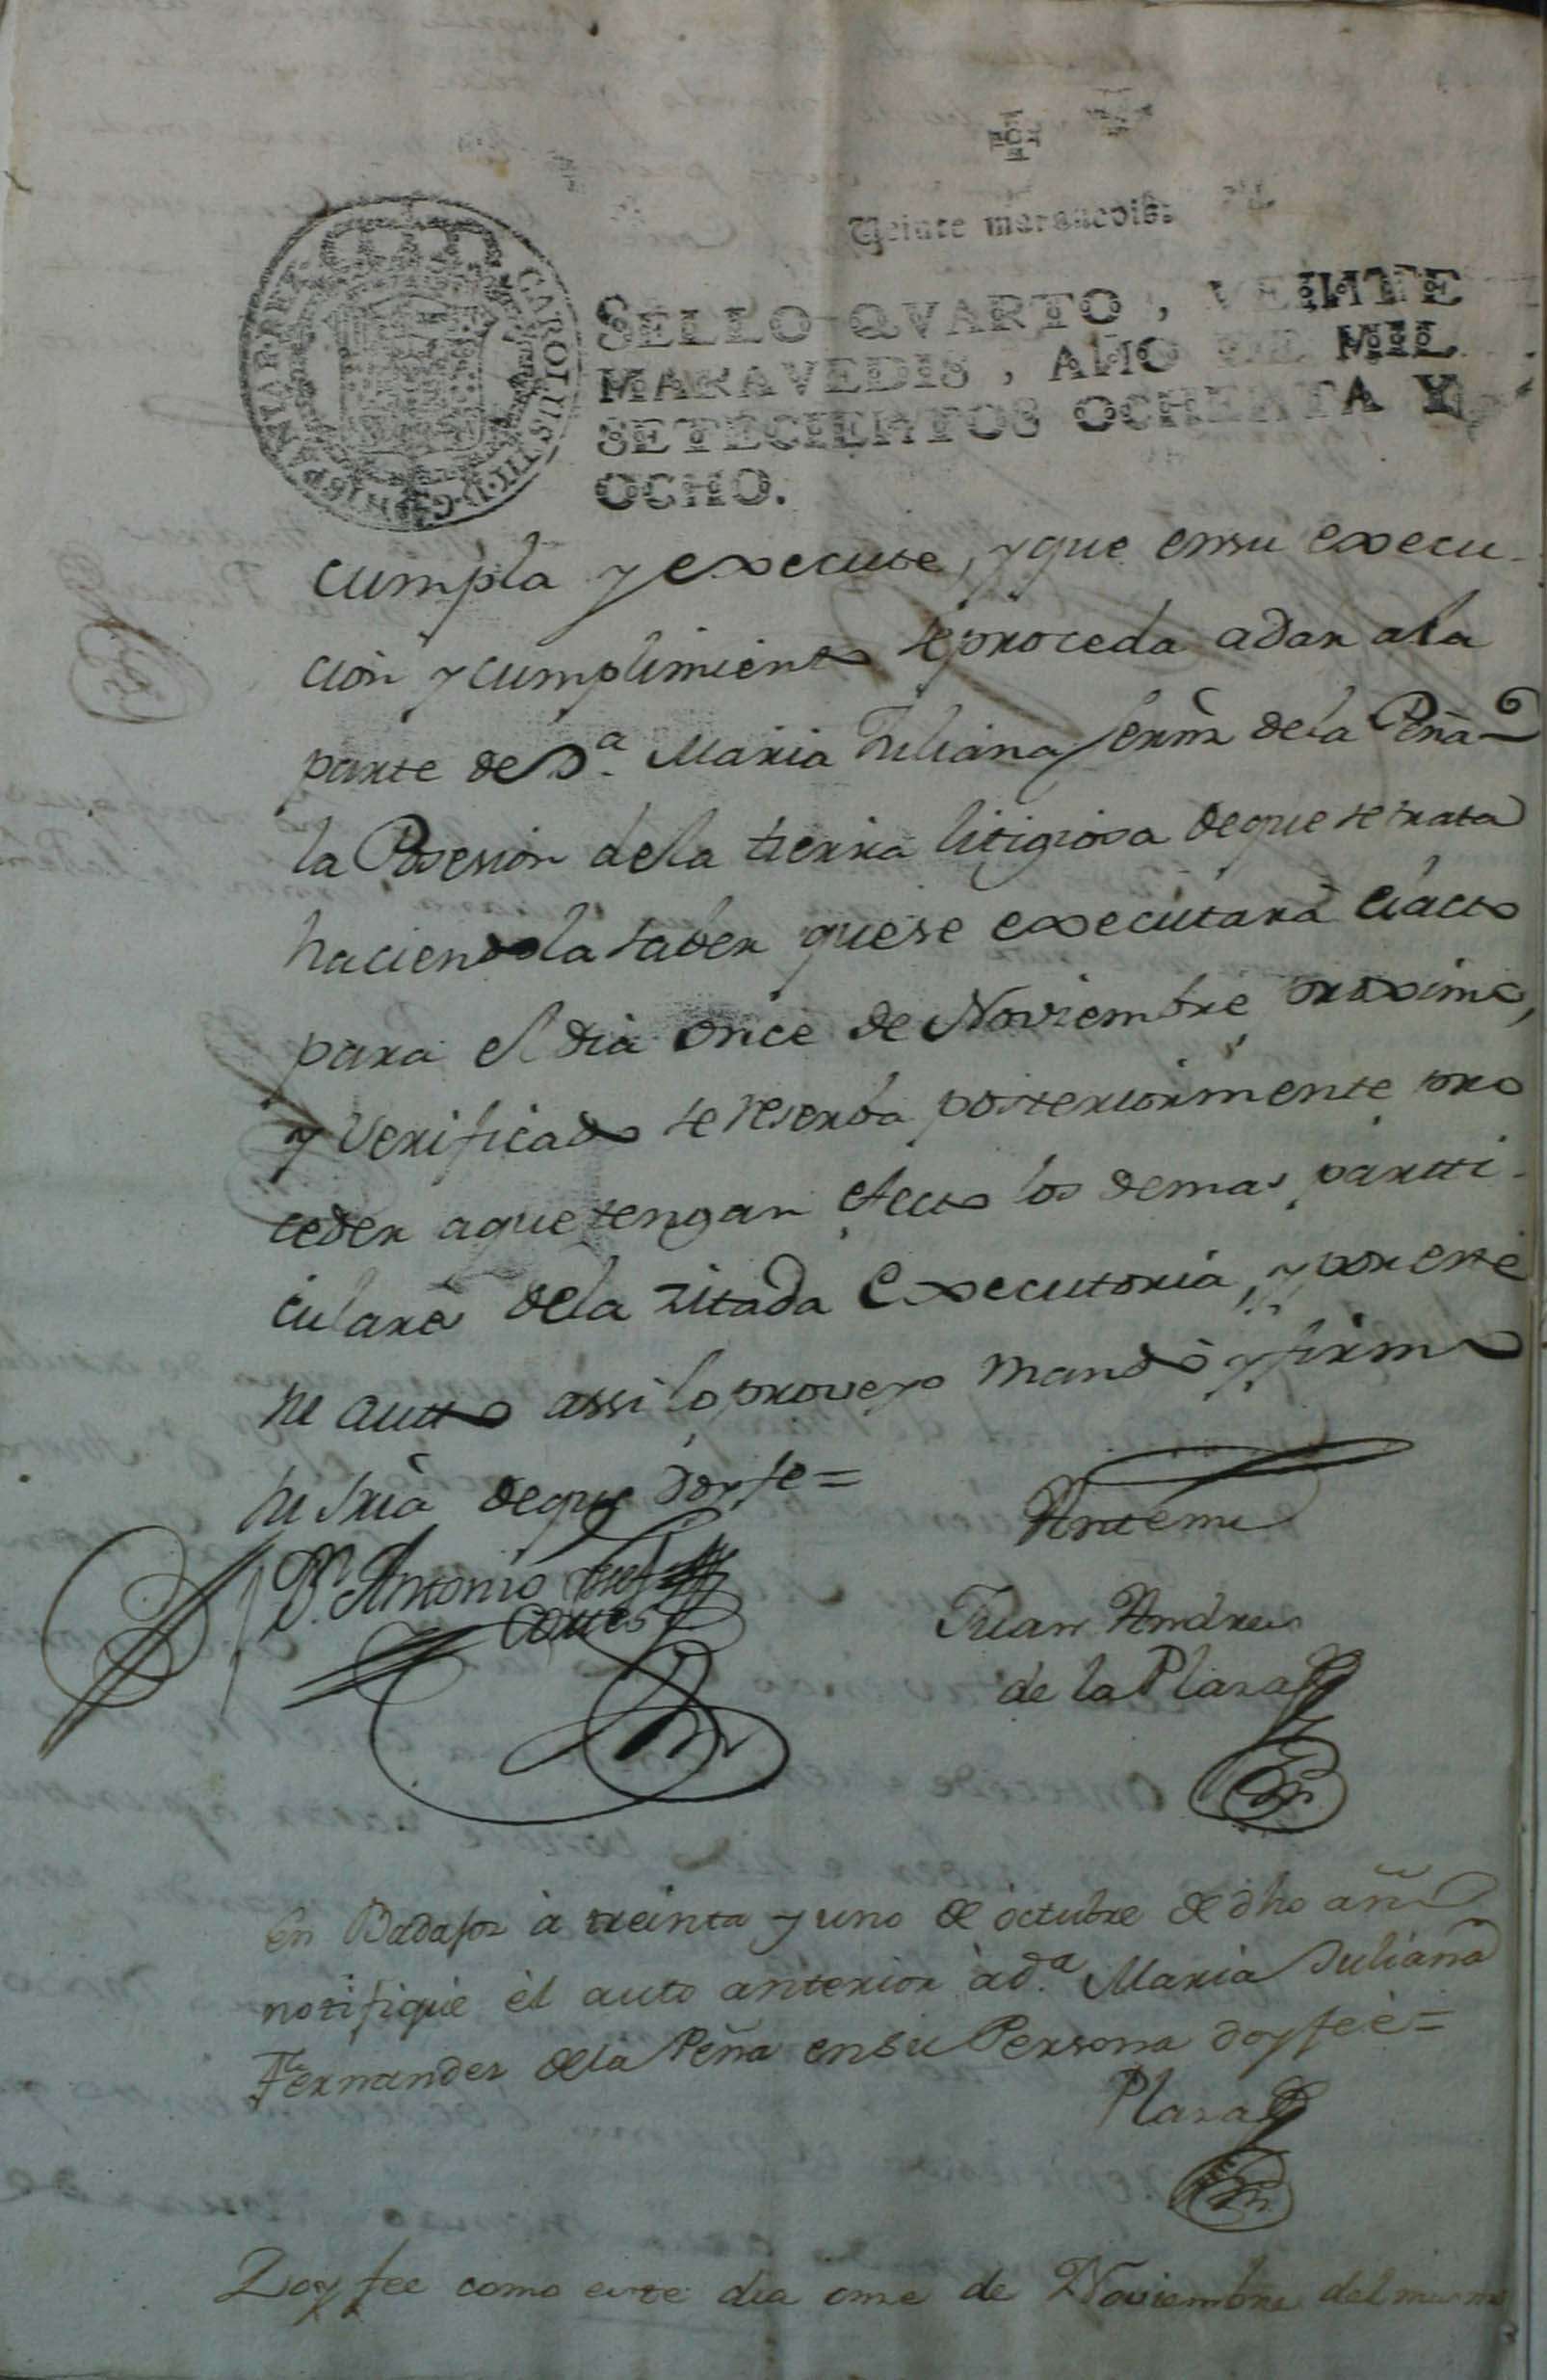 Veinte maravedis.
CAROLUS III D G HISPANIAR REX
SELLO QVARTO, VEINTE
MARAVEDIS, AÑO DE MIL
SETECIENTOS OCHENTA Y
OCHO.
cumpla y execute, y que ensu execu-
cion y cumplimiento se proceda adar ala
parte de D.ª Maria Juliana Fernz dela Peña
la Posesion dela tierra litigiosa deque se trata
haciendola saber quese executará el acto
para el dia once de Noviembre proximo,
y Verificado se reserba posteriormente pro
ceder aque tengan efecto los demas partti-
culares dela zitada Executoria, y por este
su autto assi lo proveyo mandó y firmo
su sria deque doy fe=
Dn. Antonio
Cortes
Antemi
Juan Andres
de la Plaza
En Badajoz à treinta y uno de octubre de dho año
notifiqué èl auto anterior àd.ª Maria Juliana
Fernandez dela Peña ensu Persona doy feè=
Plaza
Doy fee como este dia onze de Noviembre del mismo